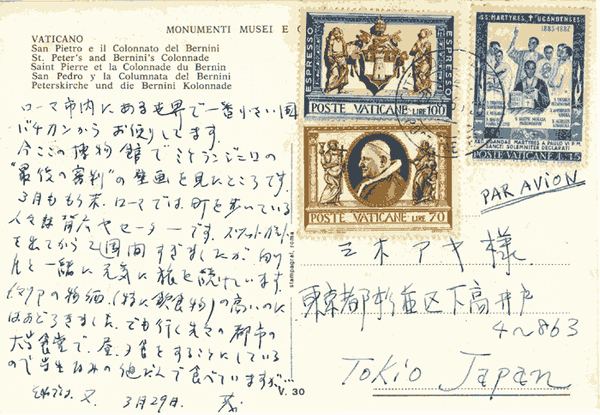 MONUMENTI MUSEI E
VATICANO
San Pietro e il Colonnato del Bernini
St. Peter's and Bernini's Colonnade
Saint Pierre et la Colonnade du Bernin
San Pedro y la Columnata del Bernini
Peterskirche und die Bernini Kolonnade
ローマ市内にある世界で一番小さい国
バチカンから お便りしてます。
今ここの博物館でミケランジェロの
"最後の審判"の壁画を見たところです。
3月も末、ローマでは町を歩いている
人々は背广やセーターです。
を出てから2週間すぎましたが
と一緒に元気に旅を続けています。
イタリアの物価(特に飲食物)の高いのに
はおどろきました。でも行く先々の都市の
大学食堂で、昼、夕食をとることにしている
ので学生なみの値だんで食べていますが…
又 3月29日.
stampagraf, roma
V. 30
ESPRESSO
ESPRESSO
POSTE VATICANE LIRE 100
POSTE VATICANE LIRE 70
SS. MARTYRES UGANDENSES
1885-1887
UGANDAE MARTYRES A PAULO VI P.M.
SANCTI SOLEMNITER DECLARATI
POSTE VATICANE L. 15
PAR AVION
三木アヤ様
東京都杉並区下高井戸
4~863
Tokio Japan